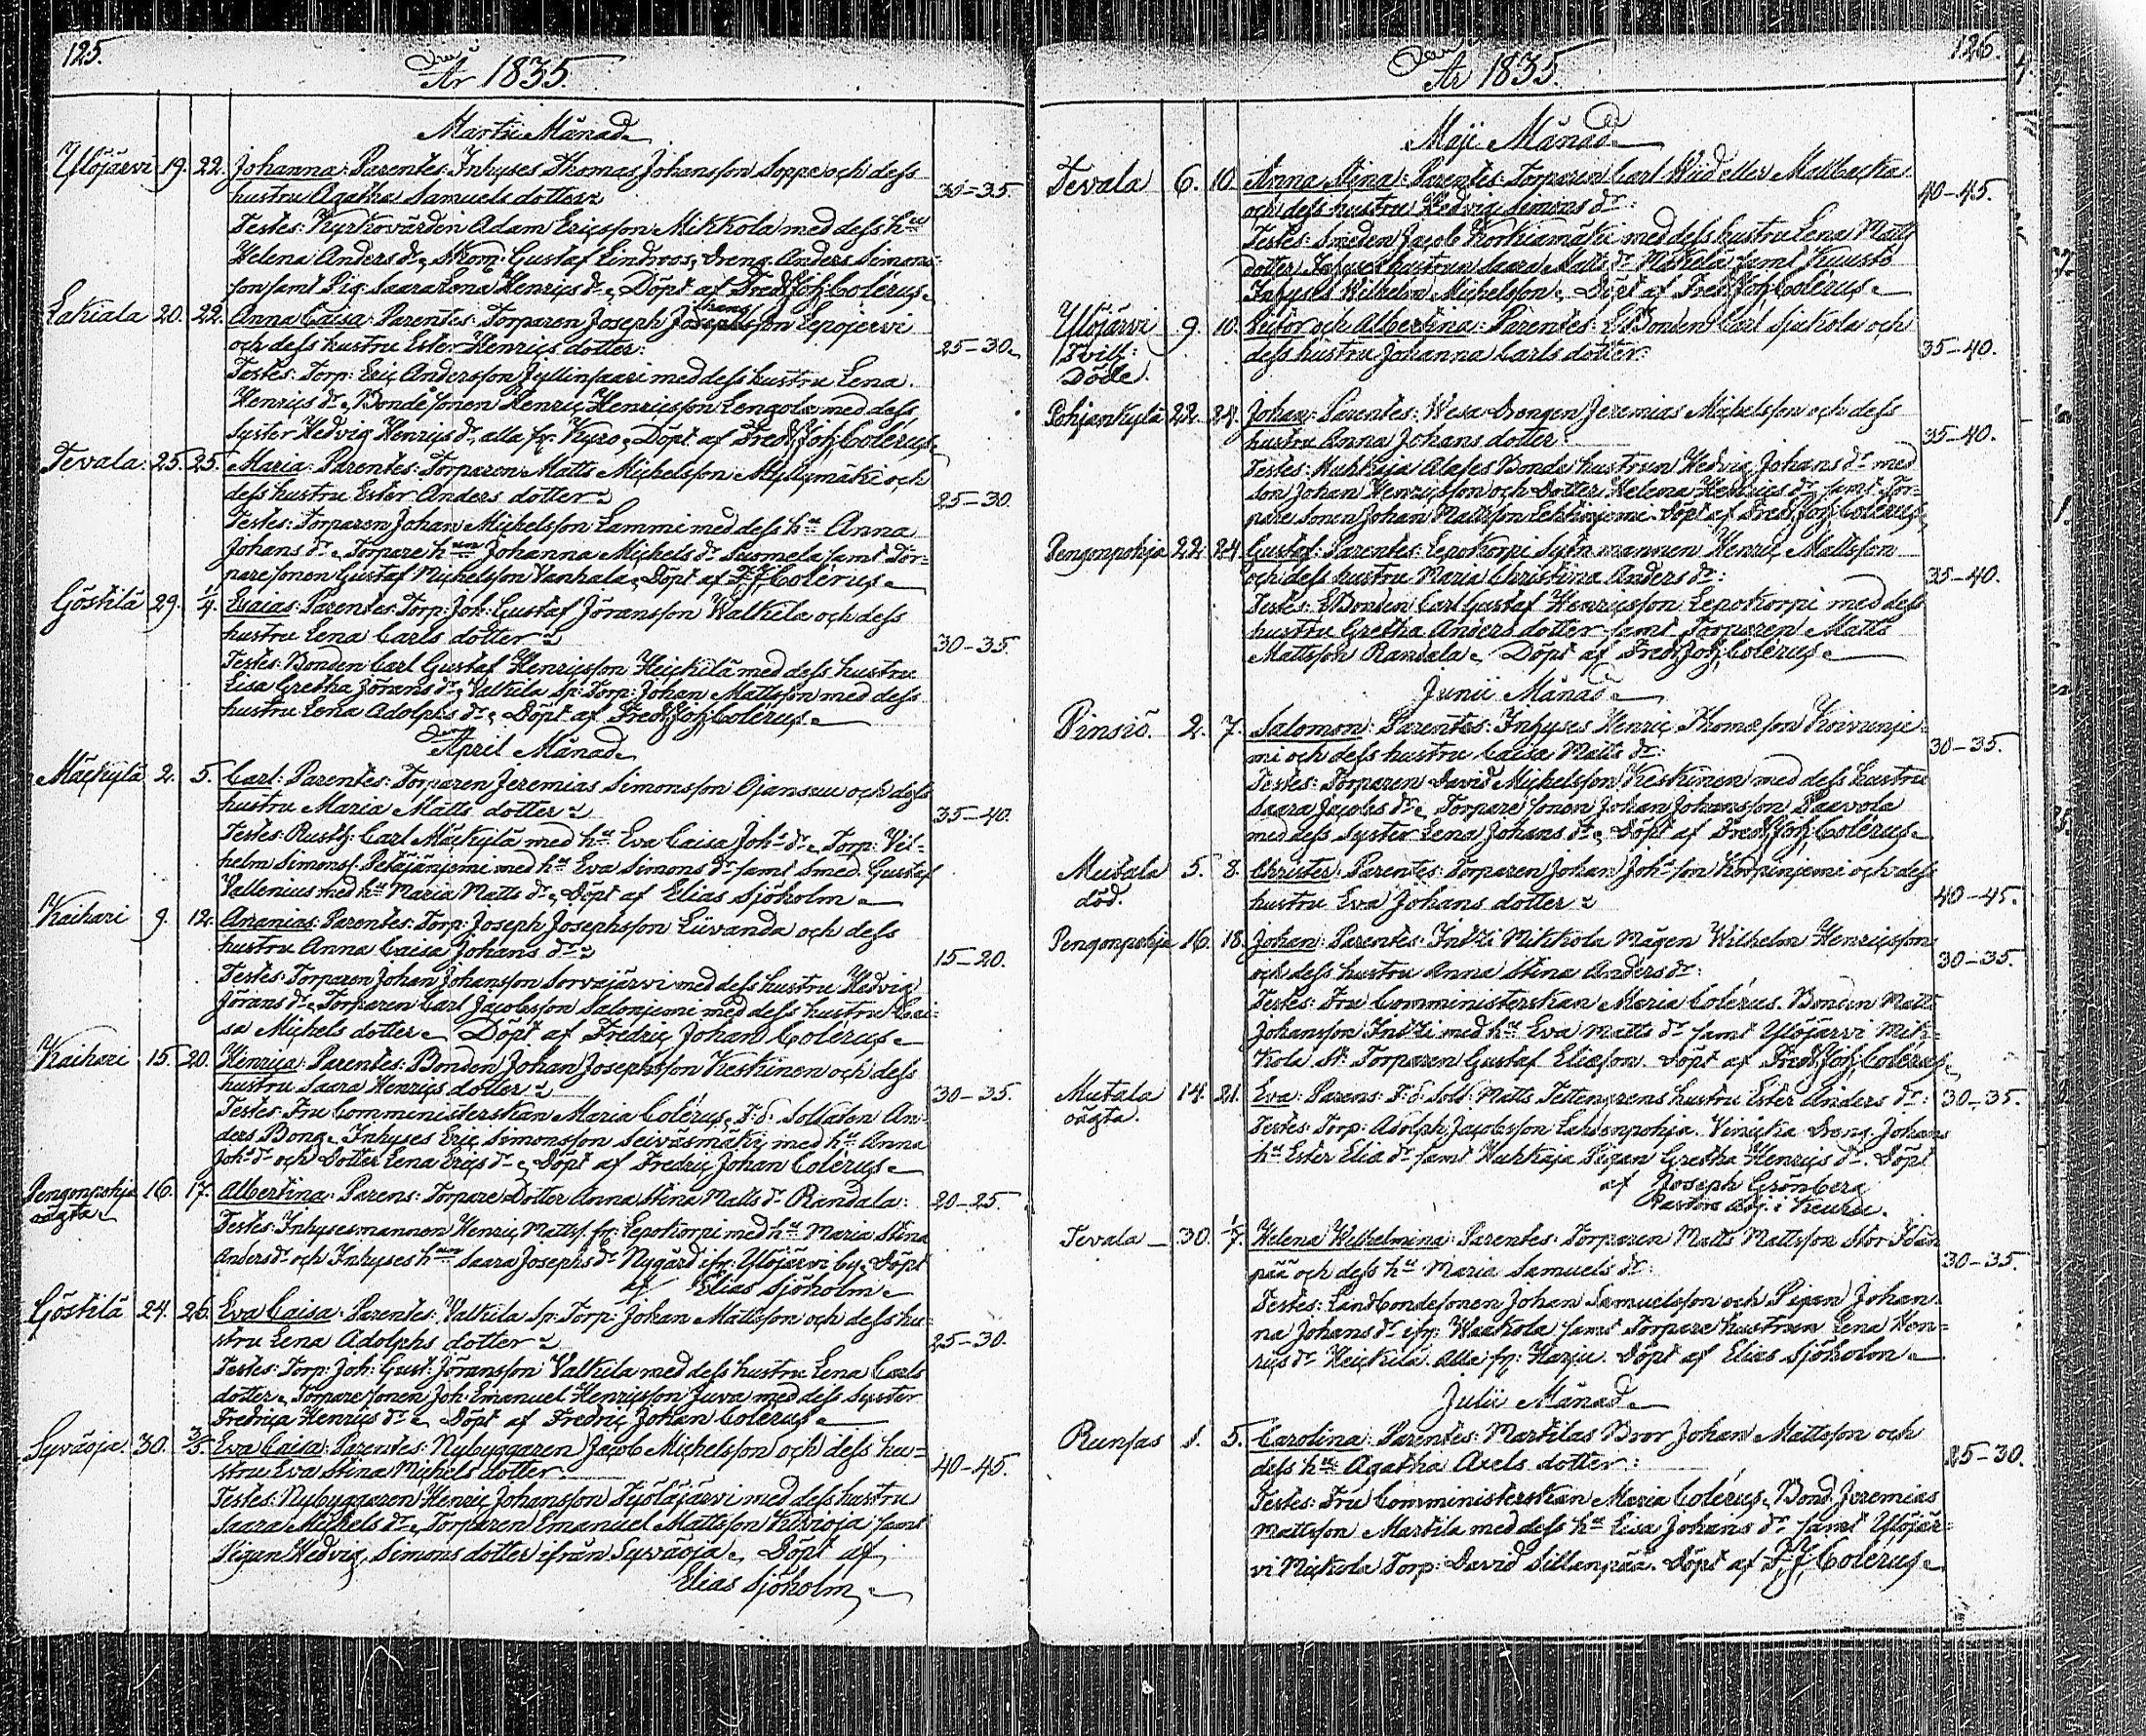 125.
År 1835.
Martii Månad
Ylöjärvi 19. 22. Johanna: Parentes: Inhyses Thomas Johansson Soppe och dess
hustru Agatha Samuels dotter 30-35.
Testes: Kyrkovärden Adam Ericsson Mikkola med dess hu
Helena Anders dr, Skom: Gustaf Lindroos, Dreng Anders Simons-
son samt Pig. Saara Lena Henrics dr. Döpt af Fred. Joh. Colérus.
Lakiala 20. 22. Anna Caisa: Parentes: Torparen Joseph Josephsson Lepojervi
och dess hustru Ester Henrics dotter: 25-30.
Testes: Torp: Eric Andersson med dess hustru Lena
Henrics dr. Bondesonen Henric Henricsson Lengola med dess
Syster Hedvig Henrics dr, alla fr. Kyro. Döpt af Fred. Joh. Colérus.
Tevala 25. 25. Maria: Parentes: Torparen Matts Michelsson Myllymäki och
dess hustru Ester Anders dotter 25-30.
Testes: Torparen Johan Michelsson Lammi med dess hu Anna
Johans dr. Torpare hun Johanna Michels dr Suomela samt Tor-
paresonen Gustaf Michelsson Vanhala. Döpt af F. J. Colérus.
Göstilä 29. 1/4. Esaias: Parentes: Torp: Joh: Gustaf Jöransson Walkila och dess
hustru Lena Carls dotter 30-35.
Testes: Bonden Carl Gustaf Henricsson Heickilä med dess hustru
Lisa Gretha Jörans dr, Valkila Sp: Torp: Johan Mattsson med dess
hustru Lena Adolphs dr. Döpt af Fred. Joh. Colérus.
April Månad
Mäckylä 2. 5. Carl: Parentes: Torparen Jeremias Simonsson Ojansuu och dess
hustru Maria Matts dotter 35-40.
Testes: Rusth: Carl Mäckylä med hu Eva Caisa Johs dr. Torp: Vil-
helm Simonss. Petäjänjemi med hu Eva Simons dr samt Smed. Gustaf
Vallenius med hu Maria Matts dr. Döpt af Elias Sjöholm
Kaihari 9. 12. Ananias: Parentes: Torp: Joseph Josephsson Liuvanda och dess
hustru Anna Caisa Johans dr 15-20.
Testes: Torparen Johan Johansson Sorvajärvi med dess hustru Hedvig
Jörans dr. Torparen Carl Jacobsson Salonjemi med dess hustru Loui-
sa Michels dotter. Döpt af Fredric Johan Colérus.
Kaihari 15. 20. Henrica: Parentes: Bonden Johan Josephsson Keskinen och dess
hustru Saara Henrics dotter 30-35.
Testes: Fru Comministerskan Maria Colérus, F: d: Soldaten An-
ders Bong. Inhyses Eric Simonsson Seiväsmäki med hu Anna
Johs dr och Dotter Lena Erics dr. Döpt af Fredric Johan Colérus.
Pengonpohja 16. 17. Albertina: Parens: Torpare Dotter Anna Stina Matts dr Randala: 20-25.
oägta
Testes: Inhysesmannen Henric Mattss. fr. Lepokorpi med hu Maria Stina
Anders dr och Inhyses hun Saara Josephs dr Nygård ifr: Ylöjärvi by. Döpt
af Elias Sjöholm
Göstilä 24. 26. Eva Caisa: Parentes: Valkila Sp: Torp: Johan Mattsson och dess hu-
stru Lena Adolphs dotter 25-30.
Testes: Torp: Joh: Gust: Jöransson Valkila med dess hustru Lena Carls
dotter. Torparesonen Joh: Emanuel Henricsson Juva med dess Syster
Fredrica Henrics dr. Döpt af Fredric Johan Colérus.
Syväoja 30. 3/5. Eva Caisa: Parentes: Nybyggaren Jacob Michelsson och dess hu-
stru Eva Stina Michels dotter 40-45.
Testes: Nybyggaren Henric Johansson med dess hustru
Saara Michels dr. Torparen Emanuel Mattsson samt
Pigan Hedvig Simons dotter ifrån Syväoja. Döpt af
Elias Sjöholm
126.
År 1835.
Maji Månad
Tevala 6. 10. Anna Stina: Parentes: Torparen Carl Wiid eller Mattbacka
och dess hustru Hedvig Simons dr: 40-45.
Testes: Smeden Jacob Korkiamäki med dess hustru Lena Matts
dotter, Inhyses hustrun Saara Matts dr Mäkelä samt Kuusto
Inhyses Wilhelm Michelsson. Döpt af Fred. Joh. Colérus.
Ylöjärvi 9. 10. Victor och Albertina: Parentes: Bonden Carl Sjukola och
Tvill: dess hustru Johanna Carls dotter: 35-40.
Döde.
Pohjankylä 22. 24. Johan: Parentes: Wesa Drengen Jeremias Michelsson och dess
hustru Anna Johans dotter 35-40.
Testes: Huhkaja Alases Bonde hustrun Hedvig Johans dr med
Son Johan Henricsson och Dotter Helena Henrics dr samt Tor-
pare Sonen Johan Mattsson Lehtinjemi. Döpt af Fred. Joh. Colérus.
Pengonpohja 22. 24. Gustaf: Parentes: Lepokorpi Sytn. mannen Henric Mattsson
och dess hustru Maria Christina Anders dr: 35-40.
Testes: Bonden Carl Gustaf Henricsson Lepokorpi med dess
hustru Gretha Anders dotter samt Torparen Matts
Mattsson Randala. Döpt af Fred. Joh. Colérus.
Junii Månad
Pinsiö. 2. 7. Salomon: Parentes: Inhyses Henric Thomasson Koivunje-
mi och dess hustru Caisa Matts dr: 30-35.
Testes: Torparen David Michelsson Keskinen med dess hustru
Saara Jacobs dr. Torparesonen Johan Johansson Paavola
med dess Syster Lena Johans dr. Döpt af Fred. Joh. Colérus.
Mutala 5. 8. Christer: Parentes: Torparen Johan Johs son Korpinjemi och dess
död. hustru Eva Johans dotter 40-45.
Pengonpohja 16. 18. Johan: Parentes: Intti Mikkola Mågen Wilhelm Henricsson
och dess hustru Anna Stina Anders dr: 30-35.
Testes: Fru Comministerskan Maria Colérus. Bonden Matts
Johansson Intti med hu Eva Matts dr samt Ylöjärvi Mik-
kola St. Torparen Gustaf Eliasson. Döpt af Fred. Joh. Colérus.
Mutala 14. 21. Eva: Parens: F: d: Sold: Matts Tettengrens hustru Ester Anders dr: 30-35.
oägta.
Testes: Torp: Adolph Jacobsson Lahdenpohja. Dreng. Johans
hu Ester Elia dr samt Huhkaja Pigan Gretha Henrics dr. Döpt
af Joseph Grönberg
Pastors Adj: i Keuru.
Tevala 30. 1/7. Helena Wilhelmina: Parentes: Torparen Matts Mattsson Stor Idän
pää och dess hu Maria Samuels dr: 30-35.
Testes: Landbondesonen Johan Samuelsson och Pigan Johan-
na Johans dr ifr: Waakola samt Torpare hustrun Lena Hen-
rics dr Heickilä. Alla fr: Harju. Döpt af Elias Sjöholm
Julii Månad
Runsas 1. 5. Carolina: Parentes: Martilas Bror Johan Mattsson och
dess hu Agatha Axels dotter: 25-30.
Testes: Fru Comministerskan Maria Colérus, Bond. Jeremias
Mattsson Martila med dess hu Lisa Johans dr samt Ylöjär-
vi Mickola Torp: David Sillanpää. Döpt af F. J. Colérus.